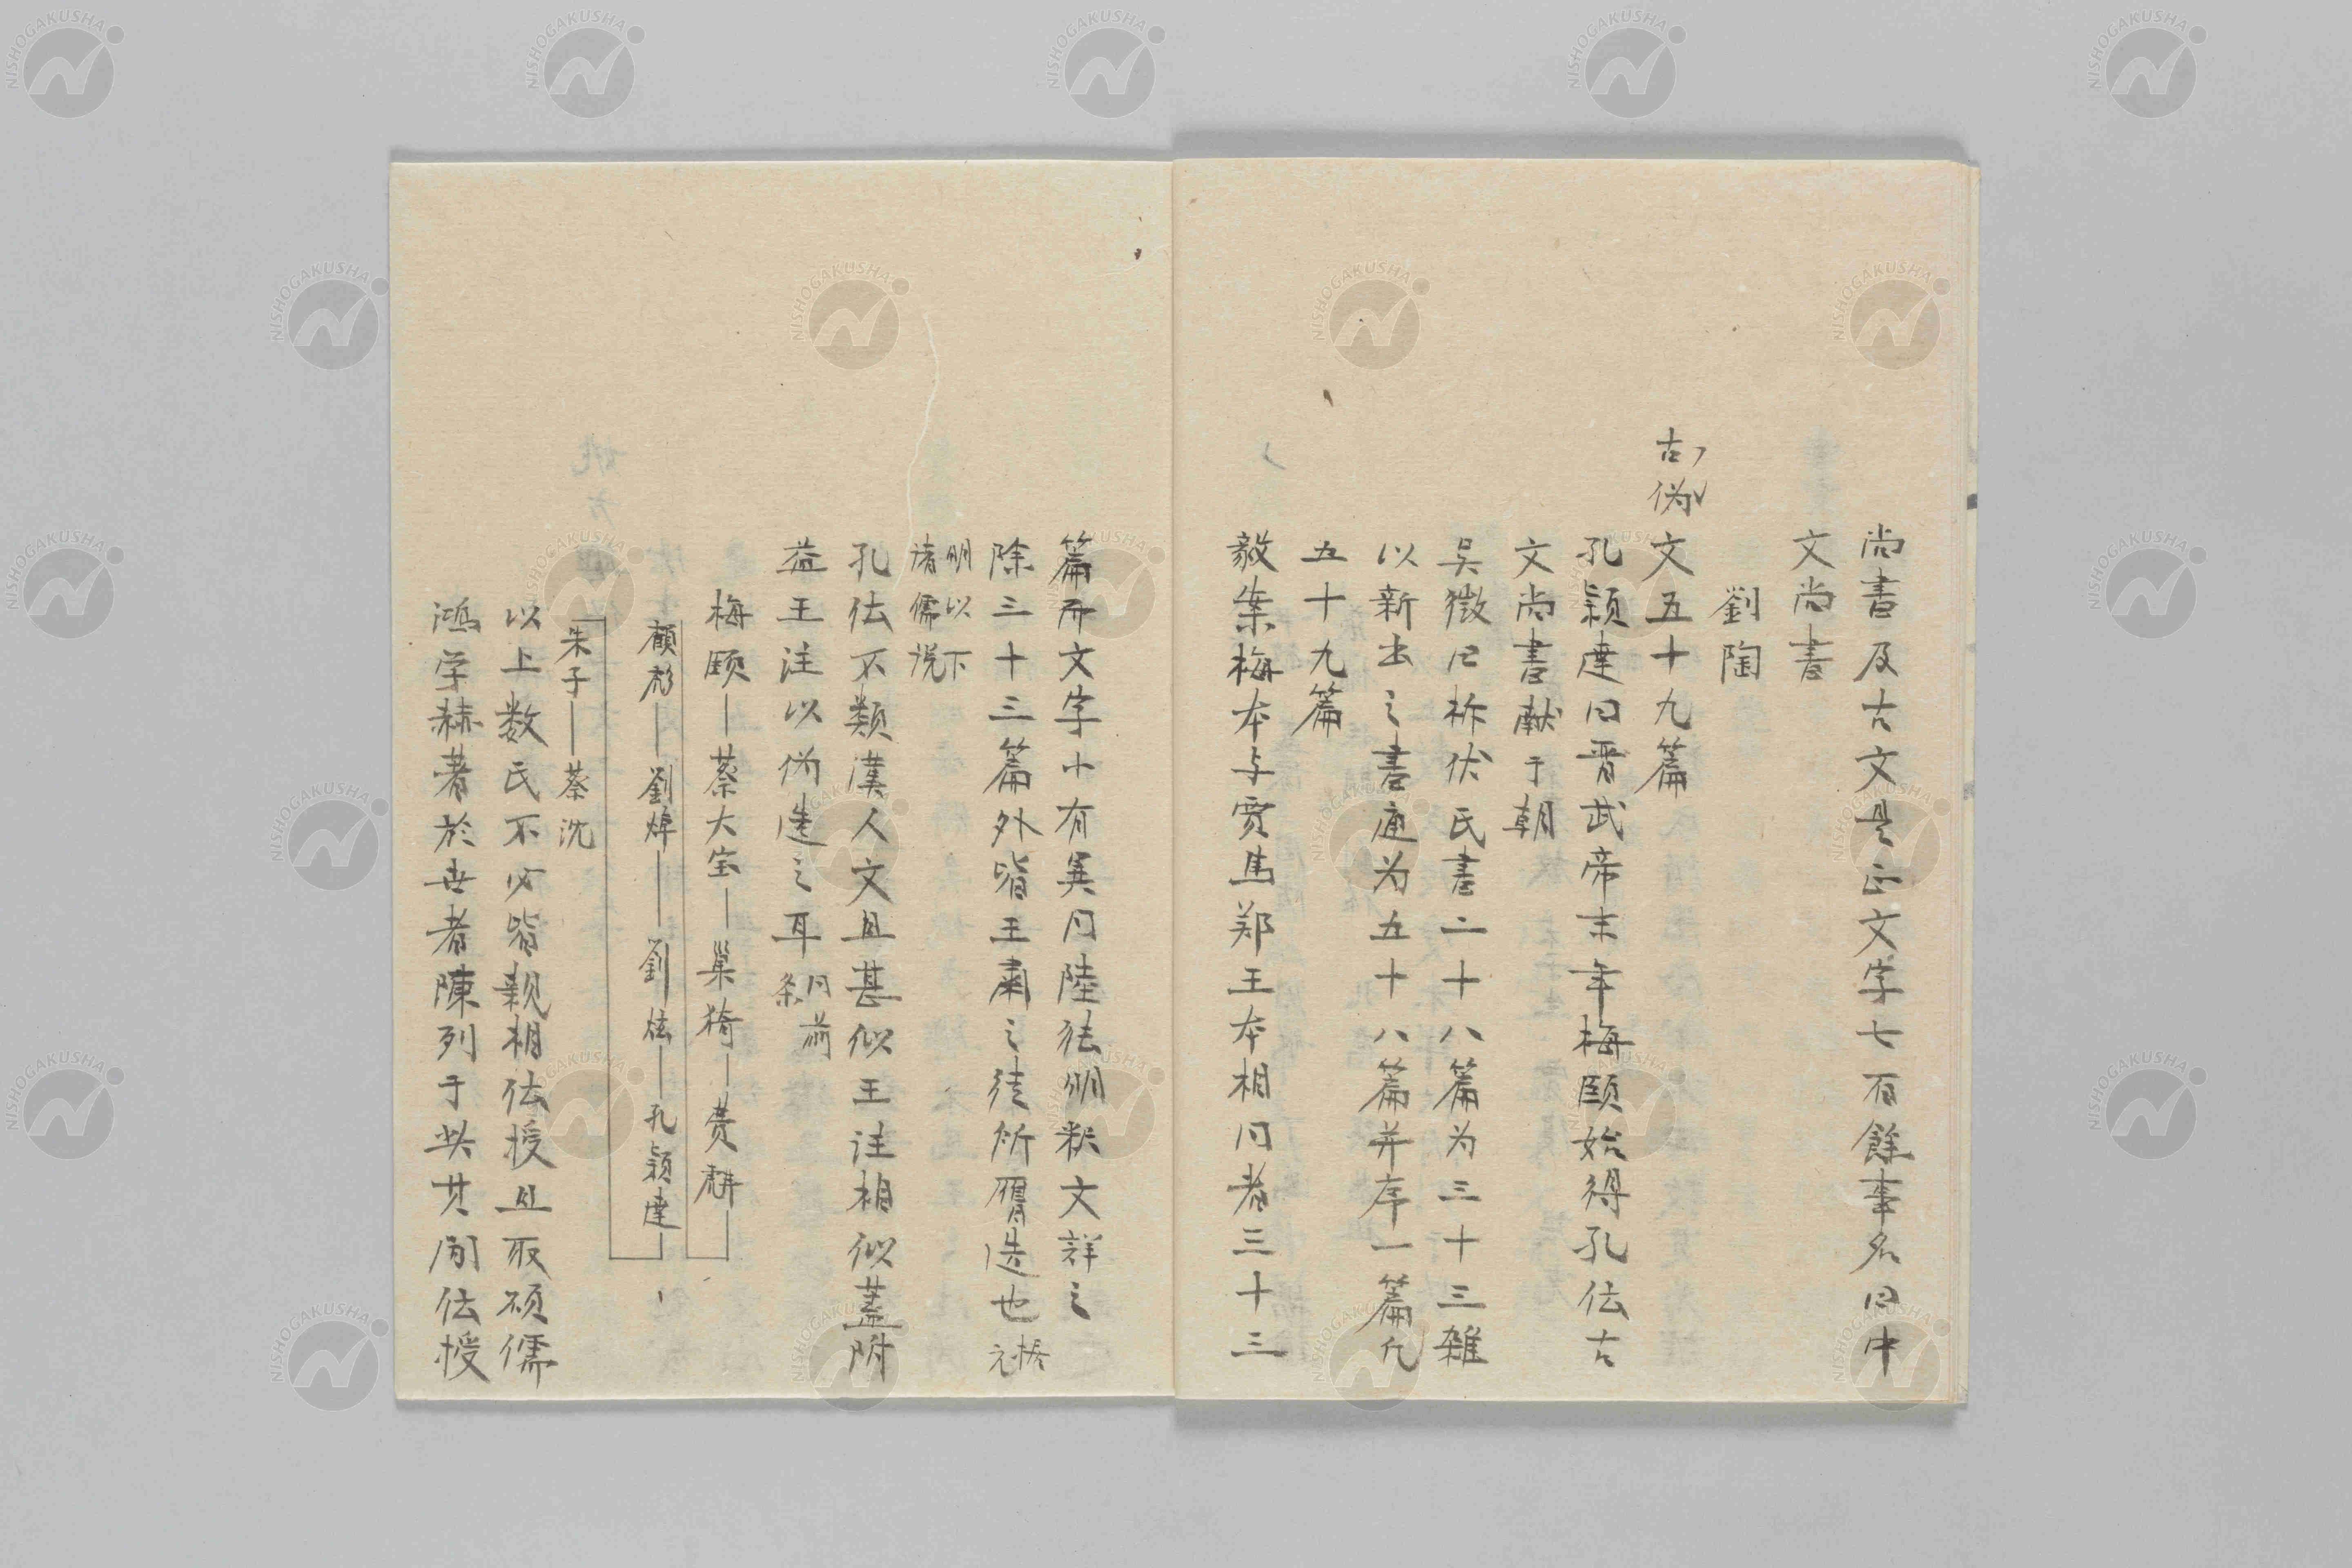 尚書及古文是正文字七百餘事名曰中
文尚書
劉陶
古偽文五十九篇
孔穎達曰晋武帝末年梅頤始得孔伝古
文尚書献于朝
呉徴曰析伏氏書二十八篇为三十三雑
以新出之書通为五十八篇并序一篇凡
五十九篇
毅案梅本与賈馬郑王本相同者三十三
篇而文字小有異同陸徳明釈文詳之
除三十三篇外皆王粛之徒所贋造也
明以下
諸儒説
孔伝不類漢人文且甚似王註相似蓋附
益王注以偽造之耳
同前
条
梅頤—蔡大宝—巣猗—費甝
顧彪—劉焯—劉炫—孔穎達
朱子—蔡沈
以上数氏不必皆親相伝授且取碩儒
鴻学赫著於世者陳列于此其間伝授
NISHOGAKUSHA